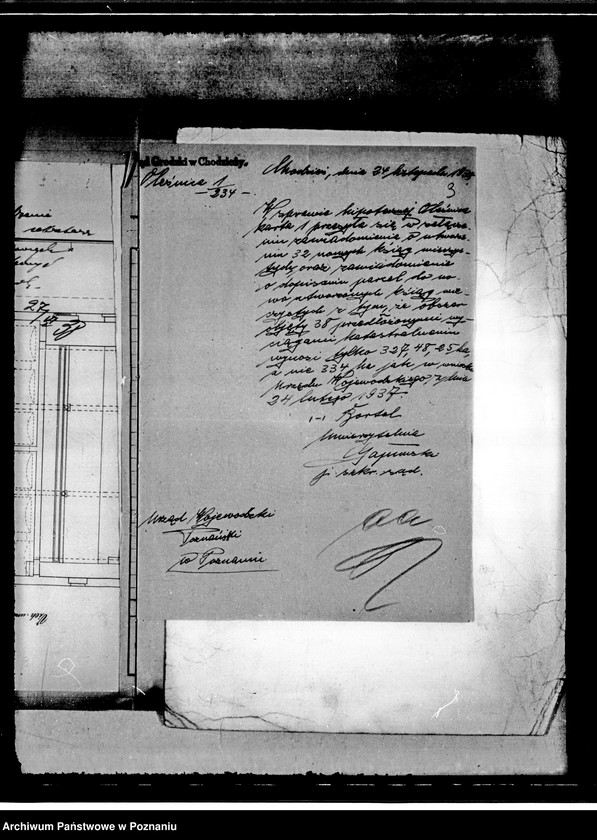 Sąd Grodzki w Chodzieży.
Oleśnica 1
334
dnia 24 listopada
3
W sprawie hipotecznej Oleśnica
karta 1 przesyła się w załącze-
niu zawiadomienie o utworze-
niu 32 nowych ksiąg wieczys-
tych oraz zawiadomienie
o dopisaniu parcel do no-
wo utworzonych ksiąg wie-
czystych z tym, że obszar
objęty 38 przedłożonymi wy-
ciągami katastralnymi
wynosi tylko 327,48,25 ha,
a nie 334 ha jak w wniosku
Urzędu Wojewódzkiego z dnia
24 lutego 1937
1-1
aa
Urząd Wojewódzki
Poznański
w Poznaniu
27
Archiwum Państwowe w Poznaniu